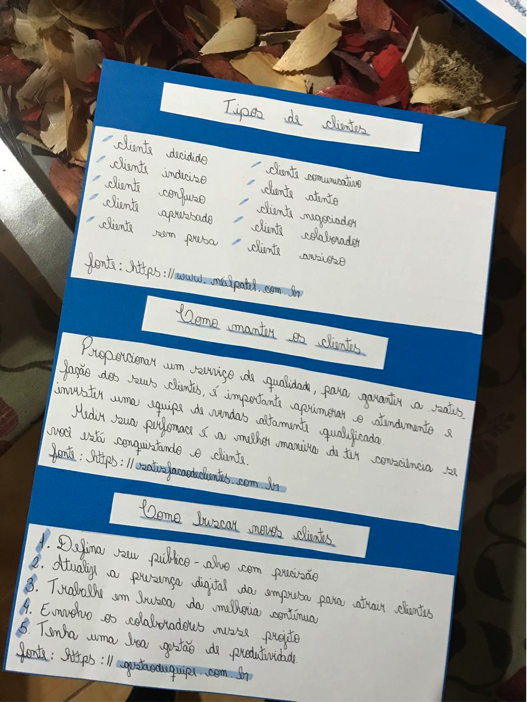 Tipos de clientes
cliente decidido
cliente indeciso
cliente confuso
cliente apressado
cliente sem presa
cliente comunicativo
cliente atento
cliente negociador
cliente colaborador
cliente ansioso
fonte: https://www.neilpatel.com.br
Como manter os clientes
Proporcionar um serviço de qualidade, para garantir a satis
fação dos seus clientes, é importante aprimorar o atendimento e
invester uma equipe de vendas altamente qualificada
Medir sua perfomace é a melhor maneira de ter consciência se
você está conquistando o cliente.
fonte: https://satisfacaodeclientes.com.br
Como buscar novos clientes
1. Defina seu público-alvo com precisão
2. Atualize a presença digital da empresa para atrair clientes
3. Trabalhe em busca da melhoria contínua
4. Envolva os colaboradores nesse projeto
5. Tenha uma boa gestão de produtividade.
fonte: https://gestaodequipe.com.br